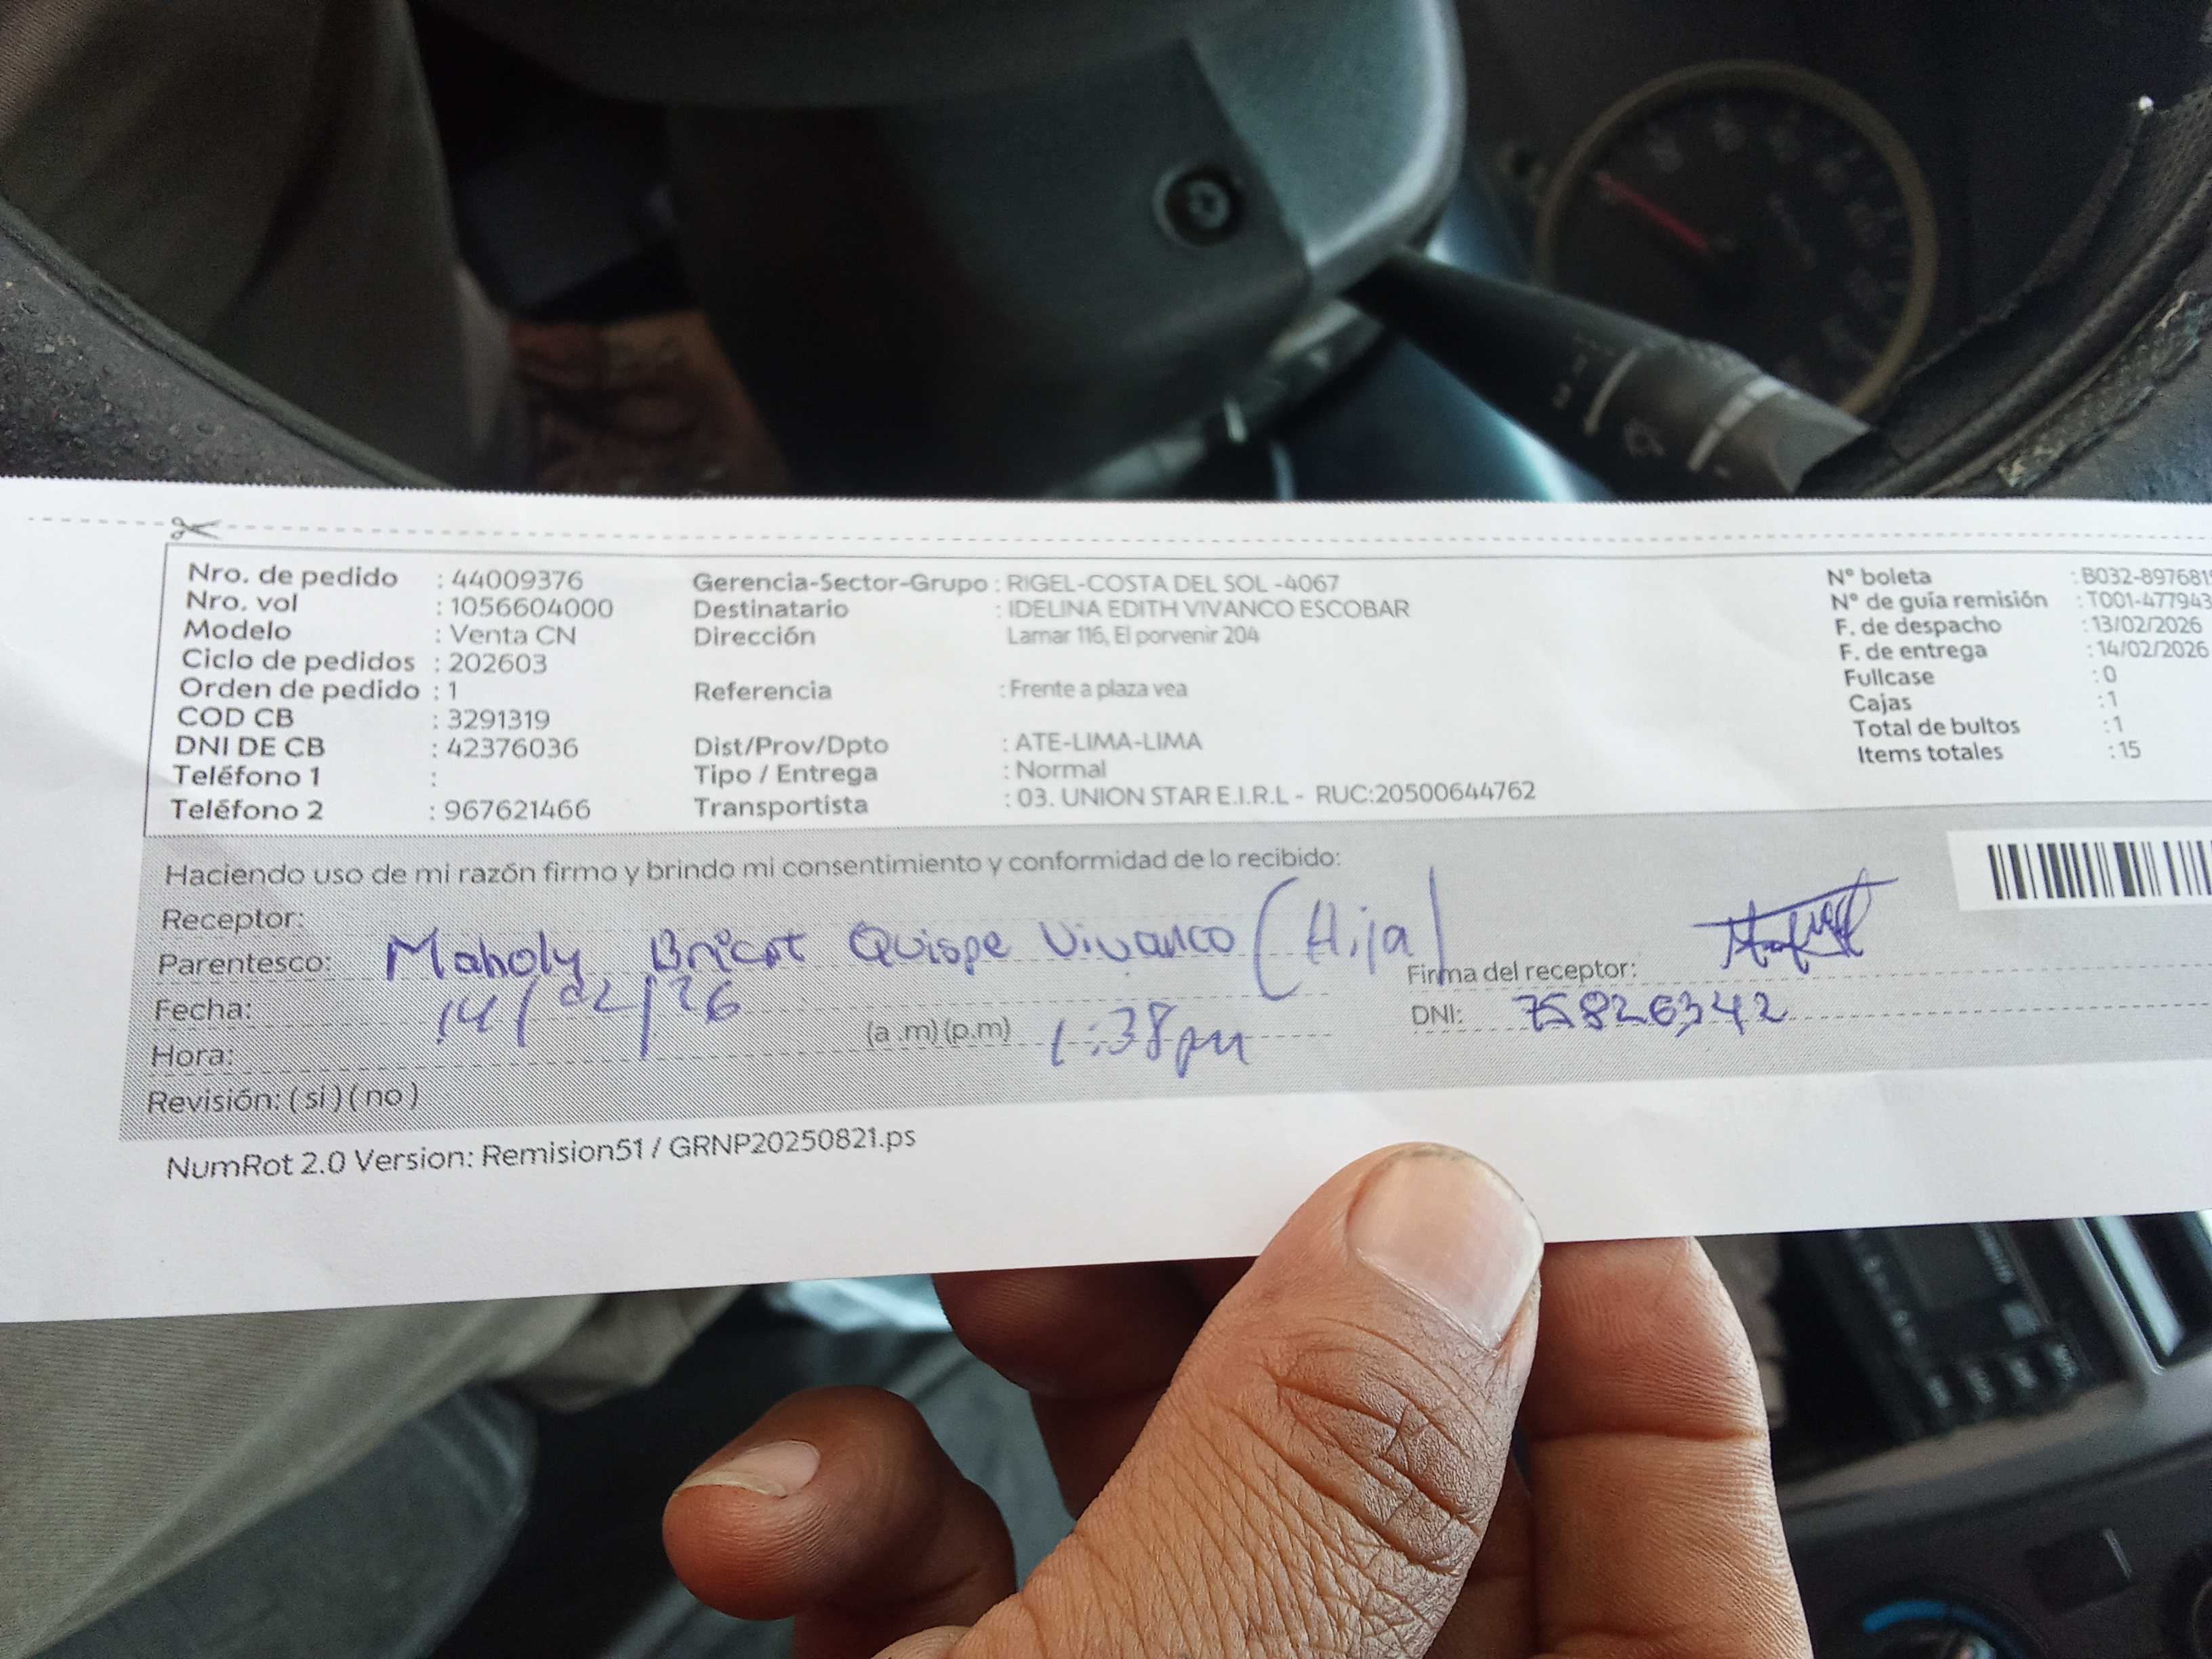 Nro. de pedido : 44009376
Nro. vol : 1056604000
Modelo : Venta CN
Ciclo de pedidos : 202603
Orden de pedido : 1
COD CB : 3291319
DNI DE CB : 42376036
Teléfono 1 :
Teléfono 2 : 967621466
Gerencia-Sector-Grupo : RIGEL-COSTA DEL SOL -4067
Destinatario : IDELINA EDITH VIVANCO ESCOBAR
Dirección Lamar 116, El porvenir 204
Referencia : Frente a plaza vea
Dist/Prov/Dpto : ATE-LIMA-LIMA
Tipo / Entrega : Normal
Transportista : 03. UNION STAR E.I.R.L - RUC:20500644762
N° boleta : B032-897681
N° de guía remisión : T001-477943
F. de despacho : 13/02/2026
F. de entrega : 14/02/2026
Fullcase : 0
Cajas : 1
Total de bultos : 1
Items totales : 15
Haciendo uso de mi razón firmo y brindo mi consentimiento y conformidad de lo recibido:
Receptor:
Parentesco: Maholy Quispe Vivanco (Hija)
Firma del receptor:
Fecha: 14/02/26
DNI: 75826342
Hora: (a .m) (p.m) 1:38pm
Revisión: ( si ) ( no )
NumRot 2.0 Version: Remision51 / GRNP20250821.ps